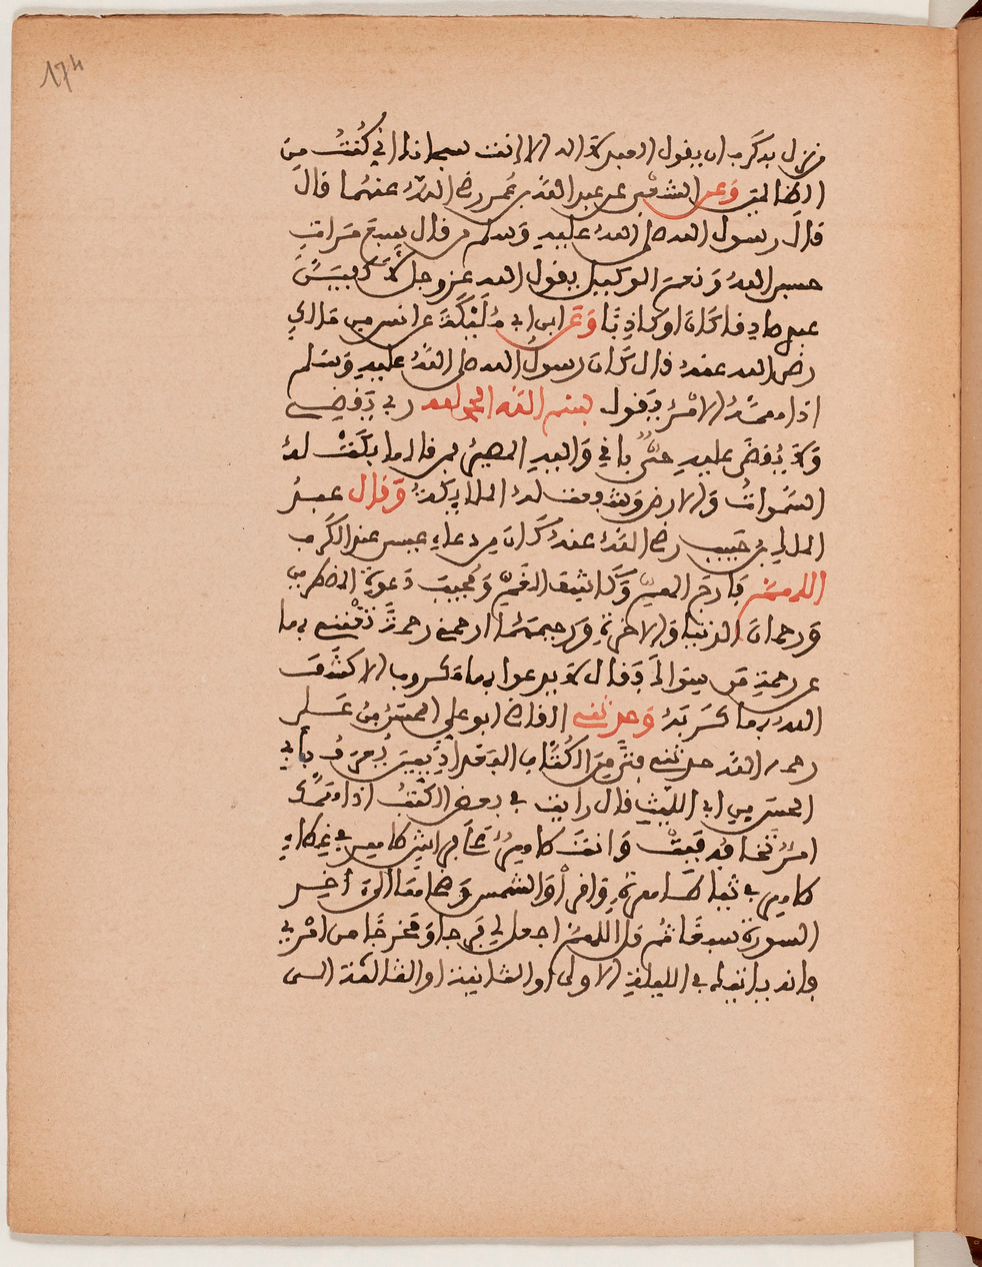 174
فنزل به كرب ان يقول العبد لا اله الا انت سبحانك اني كنت من
الظالمين وعن الشعبي عن عبد الله بن عمر رضي الله عنهما قال
قال رسول الله صلى الله عليه وسلم من قال سبع مرات
حسبي الله ونعم الوكيل يقول الله عز وجل لاكفين
عبدي صادقا كان او كاذبا وعن ابن ابي مليكة عن انس بن مالك
رضي الله عنه قال كان رسول الله صلى الله عليه وسلم
اذا همه الامر يقول بسم الله الحمد لله ربي يقضي
ولا يقضى عليه حي باقي واليه المصير من قالها بكت له
السموات والارض وشفعت له الملايكة وقال عبد
الملك بن حبيب رضي الله عنه كان من دعاء عيسى عند الكرب
اللهم يا فارج الهم وكاشف الغم ومجيب دعوة المضطرين
ورحمان الدنيا والاخرة ورحيمهما ارحمني رحمة تغنني بها
عن رحمة من سواك وقال لا يدعوا بها مكروب الا كشف
الله بها كربه وحدثني القاضي ابو علي المحسن بن علي
رحمه الله حدثني فتى من الكتاب البغداديين يعرف بابي
الحسن بن ابي الليث قال رايت في بعض الكتب اذا دهمك
امر تخافه فبت وانت طاهر على فراش طاهر في غطاء
طاهر في ثياب طاهرة واقرأ والشمس وضحاها الى اخر
السورة سبعا ثم قل اللهم اجعل لي فرجا ومخرجا من امري
فانه ياتيك في الليلة الاولى او الثانية او الثالثة الى